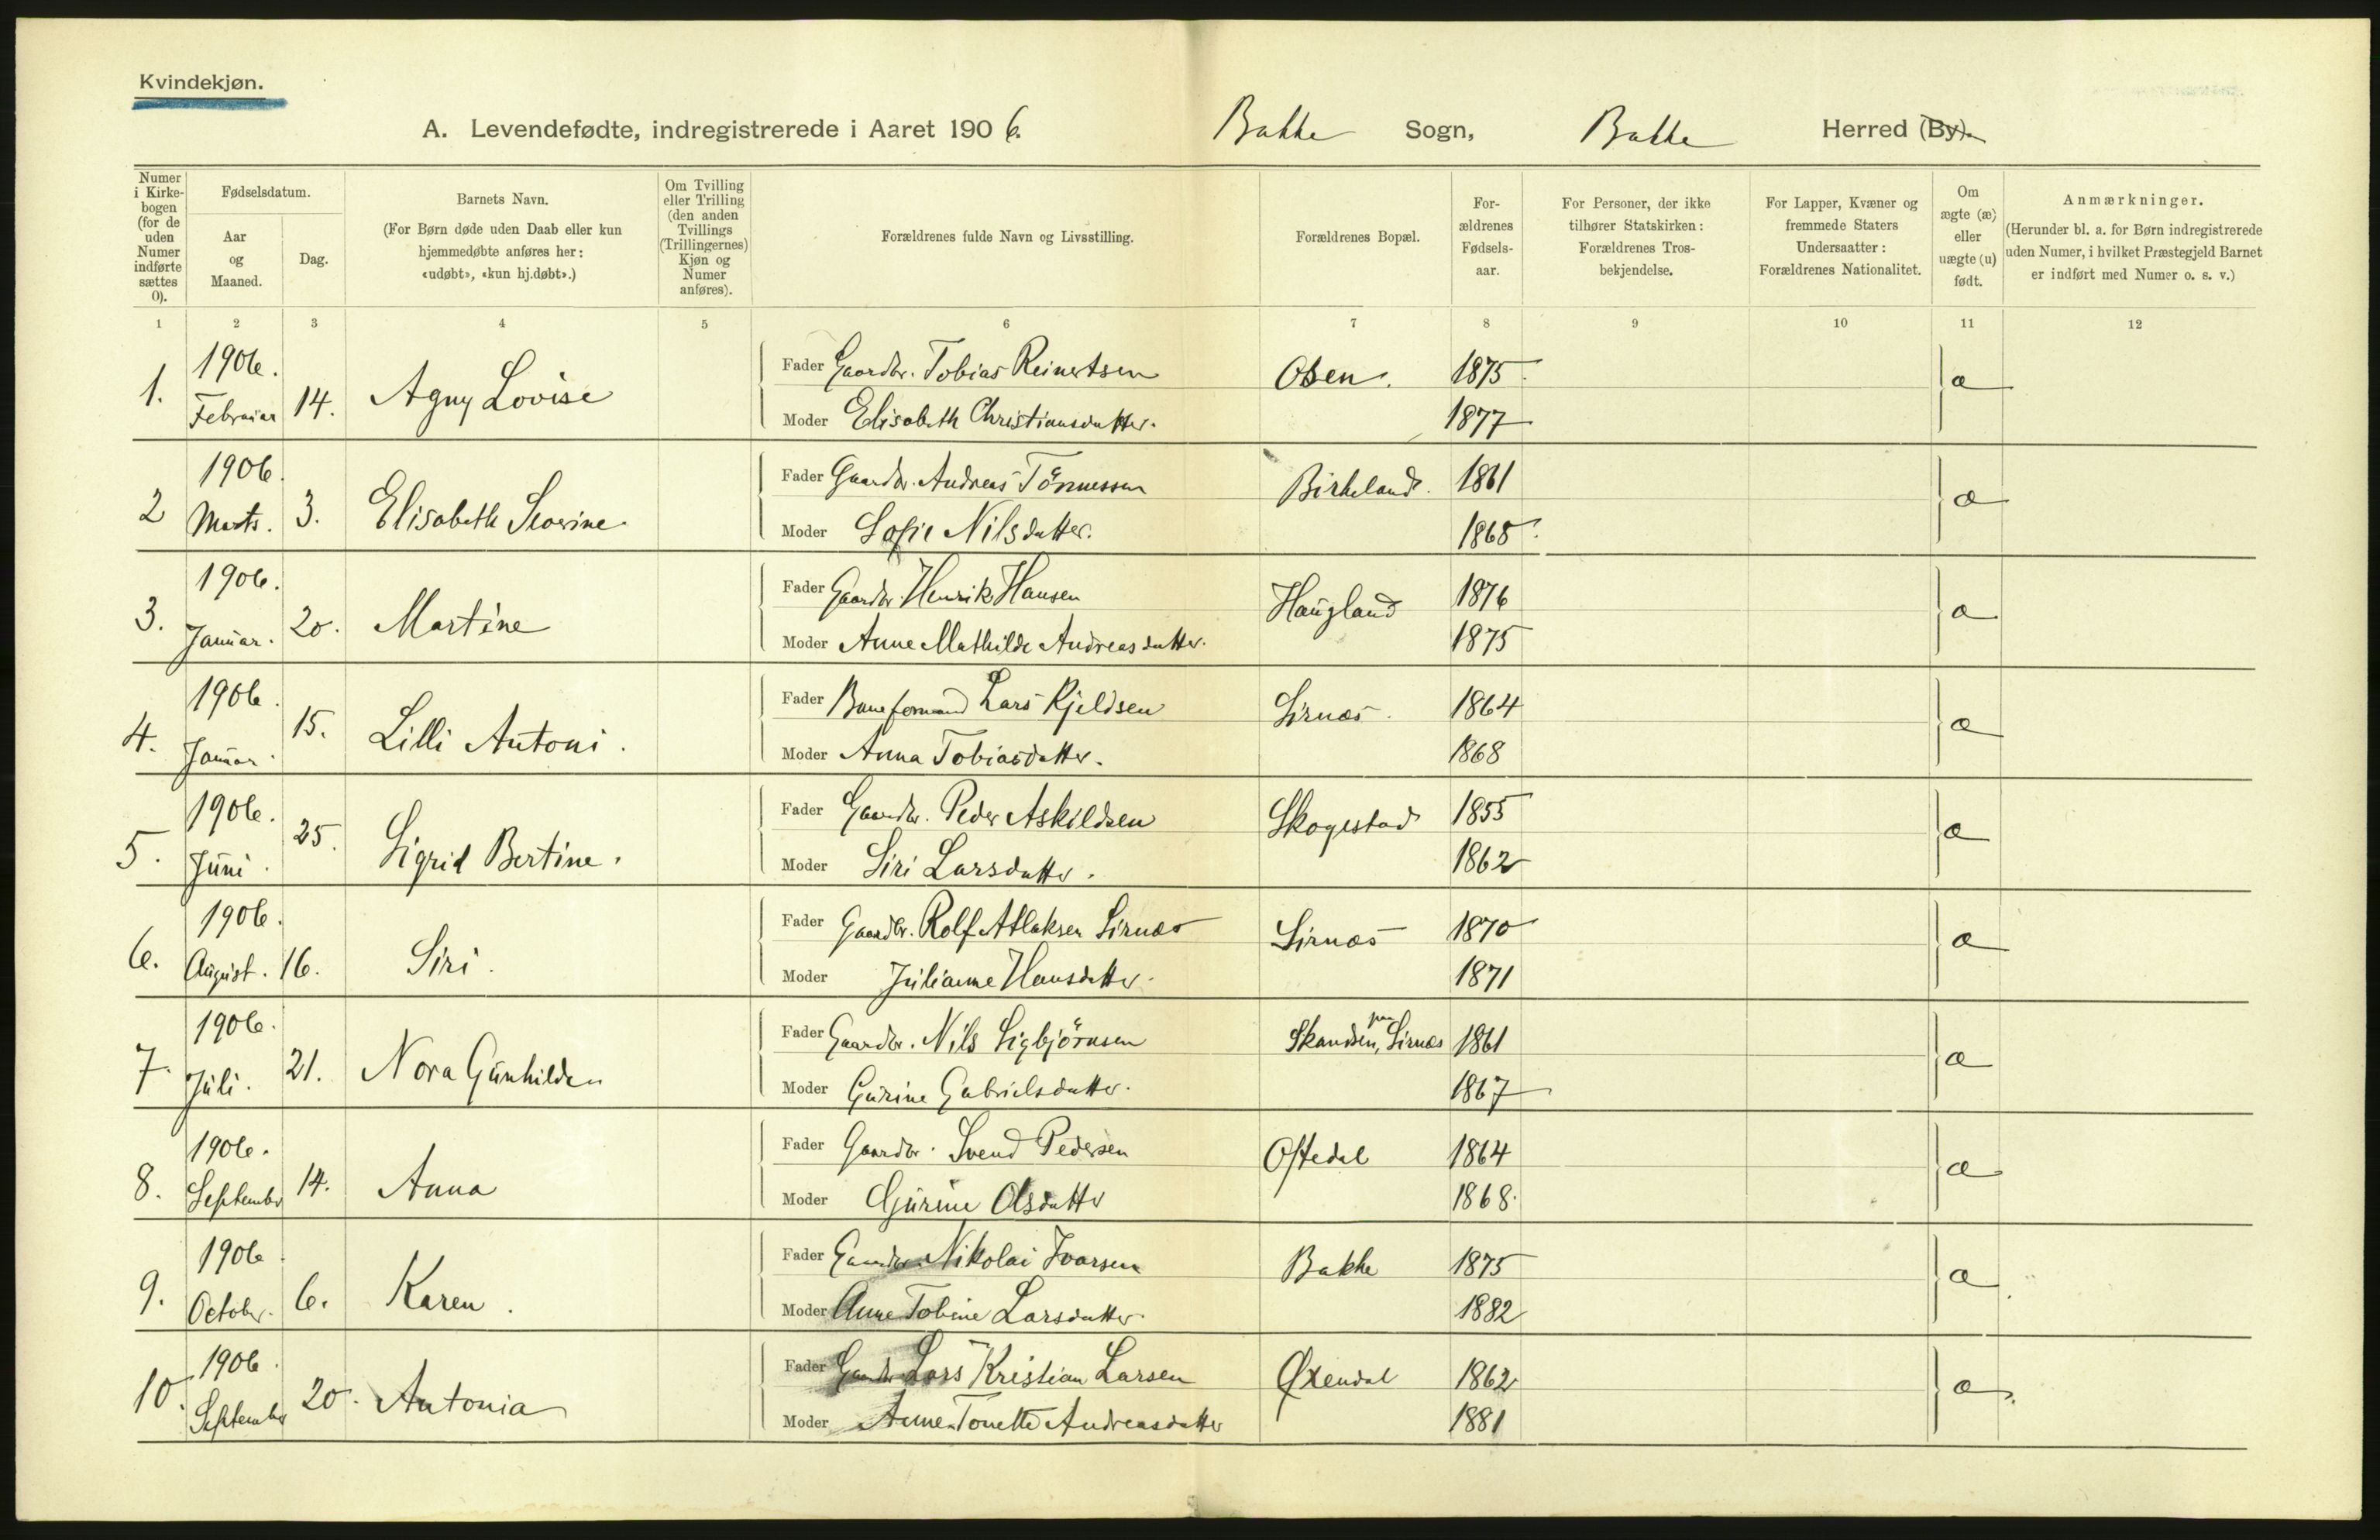 Kvindekjøn.
A. Levendefødte, indregistrerede i Aaret 1906. Bakke Sogn, Bakke Herred (By).
Numer i Kirkebogen (for de uden Numer indførte sættes 0).
Fødselsdatum.
Aar og Maaned.
Dag.
Barnets Navn.
(For Børn døde uden Daab eller kun hjemmedøbte anføres her: «udøbt», «kun hj.døbt».)
Om Tvilling eller Trilling (den anden Tvillings (Trillingernes) Kjøn og Numer anføres).
Forældrenes fulde Navn og Livsstilling.
Forældrenes Bopæl.
Forældrenes Fødselsaar.
For Personer, der ikke tilhører Statskirken: Forældrenes Trosbekjendelse.
For Lapper, Kvæner og fremmede Staters Undersaatter: Forældrenes Nationalitet.
Om ægte (æ) eller uægte (u) født.
Anmærkninger.
(Herunder bl. a. for Børn indregistrerede uden Numer, i hvilket Præstegjeld Barnet er indført med Numer o. s. v.)
1 2 3 4 5 6 7 8 9 10 11 12
1. 1906. Februar 14. Agny Lovise Fader Gaardbr. Tobias Reinertsen Osen. 1875 æ
Moder Elisabeth Christiansdatter. 1877
2 1906. Marts. 3. Elisabeth Severine. Fader Gaardbr. Andreas Tönnessen Birkeland. 1861 æ
Moder Sofie Nilsdatter. 1868
3. 1906. Januar. 20. Martine Fader Gaardbr. Henrik Hansen Haugland 1876 æ
Moder Anne Mathilde Andreasdatter. 1875
4. 1906. Januar. 15. Lilli Antoni. Fader Baneformand Lars Kjeldsen Sirnæs. 1864 æ
Moder Anna Tobiasdatter. 1868
5. 1906. Juni. 25. Sigrid Bertine. Fader Gaardbr. Peder Askildsen Skogestad 1855 æ
Moder Siri Larsdatter. 1862
6. 1906. August. 16. Siri. Fader Gaardbr. Rolf Atlaksen Sirnæs Sirnæs 1870 æ
Moder Julianne Hansdatter. 1871
7. 1906. Juli. 21. Nora Gunhilde Fader Gaardbr. Nils Sigbjörnsen Skandsen, paa Sirnæs 1861 æ
Moder Gurine Gabrielsdatter. 1867
8. 1906. September 14. Anna Fader Gaardbr. Svend Pedersen Oftedal 1864 æ
Moder Gurine Olsdatter 1868.
9. 1906. October. 6. Karen. Fader Gaardbr. Nikolai Ivarsen Bakke 1875 æ.
Moder Anne Tobine Larsdatter. 1882
10. 1906. September 20. Antonia Fader Gaardbr. Lars Kristian Larsen Øxendal 1862 æ.
Moder Anne Tonette Andreasdatter 1881